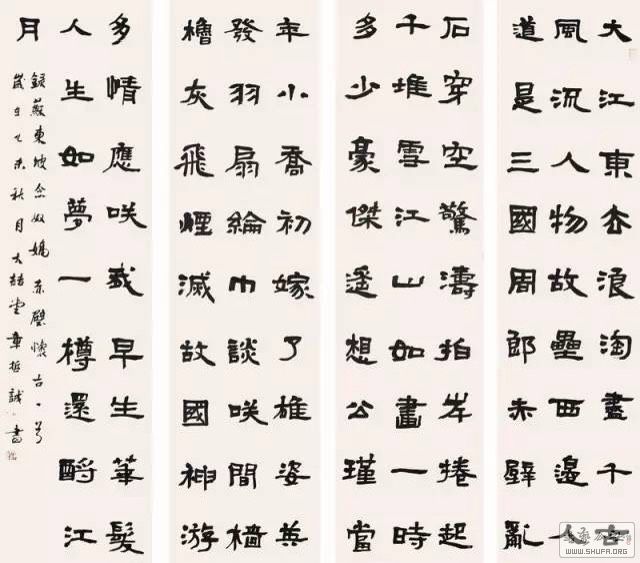 大江東去浪淘盡千古
風流人物故壘西邊人
道是三國周郎赤壁亂
石穿空驚濤拍岸捲起
千堆雪江山如畫一時
多少豪傑遙想公瑾當
年小喬初嫁了雄姿英
發羽扇綸巾談咲間檣
櫓灰飛煙滅故國神游
多情應咲我早生華髮
人生如夢一樽還酹江
月
錄蘇東坡念奴嬌赤壁懷古一首
歲在乙未秋月大堂章哲誠書
WWW.SHUFA.ORG